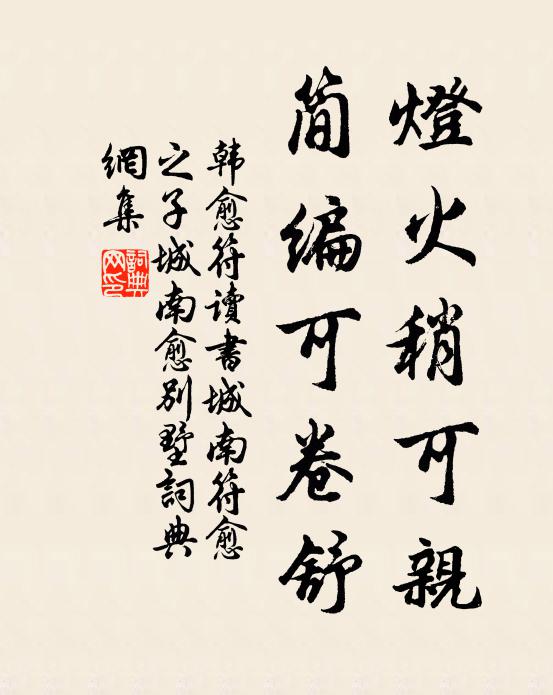 燈火稍可親
簡編可卷舒
韩愈符讀書城南符愈
之子城南愈別墅詞典
網集
詞典网印